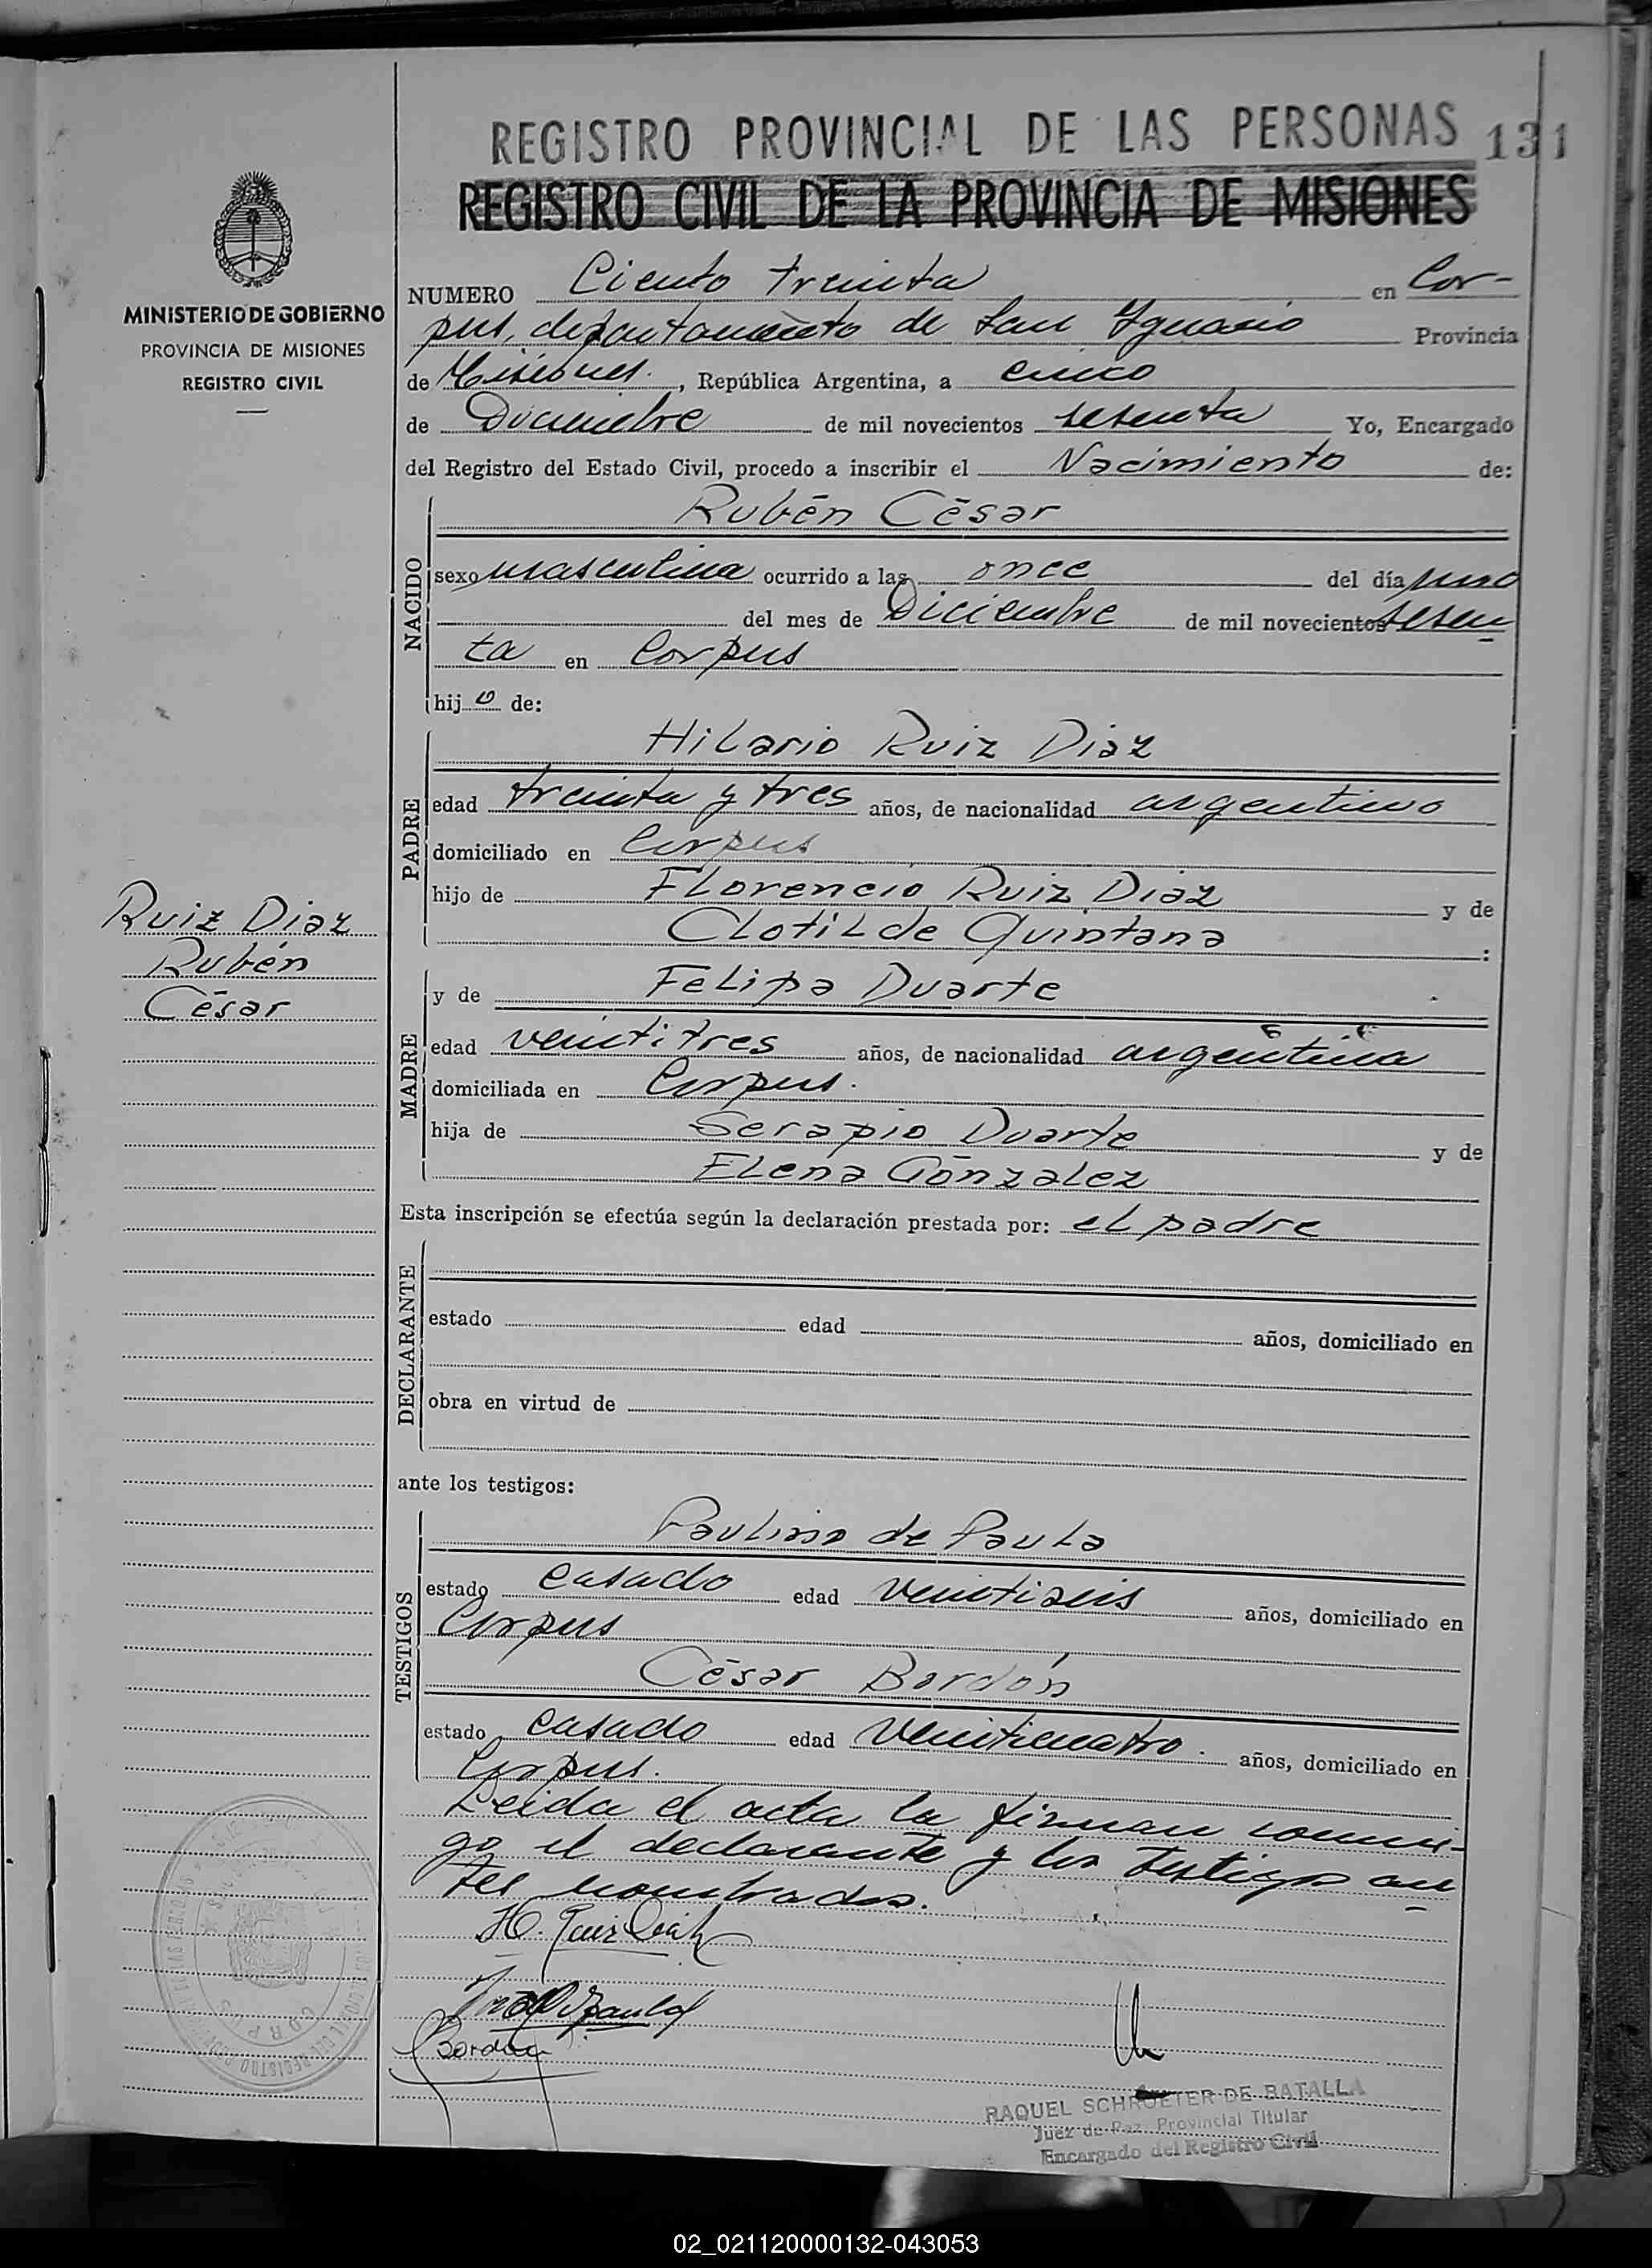 REGISTRO PROVINCIAL DE LAS PERSONAS 131
REGISTRO CIVIL DE LA PROVINCIA DE MISIONES
MINISTERIO DE GOBIERNO
PROVINCIA DE MISIONES
REGISTRO CIVIL
NUMERO Ciento treinta en Cor-
pus, departamento de San Ignacio Provincia
de Misiones. , República Argentina, a cinco
de Diciembre de mil novecientos sesenta Yo, Encargado
del Registro del Estado Civil, procedo a inscribir el Nacimiento de:
NACIDO
Rubén César
sexo masculino ocurrido a las once del día uno
del mes de Diciembre de mil novecientos sesen
ta en Corpus
hijo de:
PADRE
Hilario Ruiz Diaz
edad treinta y tres años, de nacionalidad argentino
domiciliado en Corpus
hijo de Florencio Ruiz Diaz y de
Clotilde Quintana :
Ruiz Diaz
Rubén
César
MADRE
y de Felipa Duarte
edad veintitres años, de nacionalidad argentina
domiciliada en Corpus.
hija de Serapio Duarte y de
Elena Gónzalez
Esta inscripción se efectúa según la declaración prestada por: el padre
DECLARANTE
estado edad años, domiciliado en
obra en virtud de
ante los testigos:
TESTIGOS
Paulino de Paula
estado casado edad veintiseis años, domiciliado en
Corpus
César Bordón
estado casado edad veinticuatro. años, domiciliado en
Corpus.
Leida el acta la firman conmi-
go el declarante y los testigos an
tes nombrados.
H. Ruiz Diaz
Bordón
CORPUS
RAQUEL SCHROETER DE BATALLA
Juez de Paz Provincial Titular
Encargado del Registro Civil
02_021120000132-043053